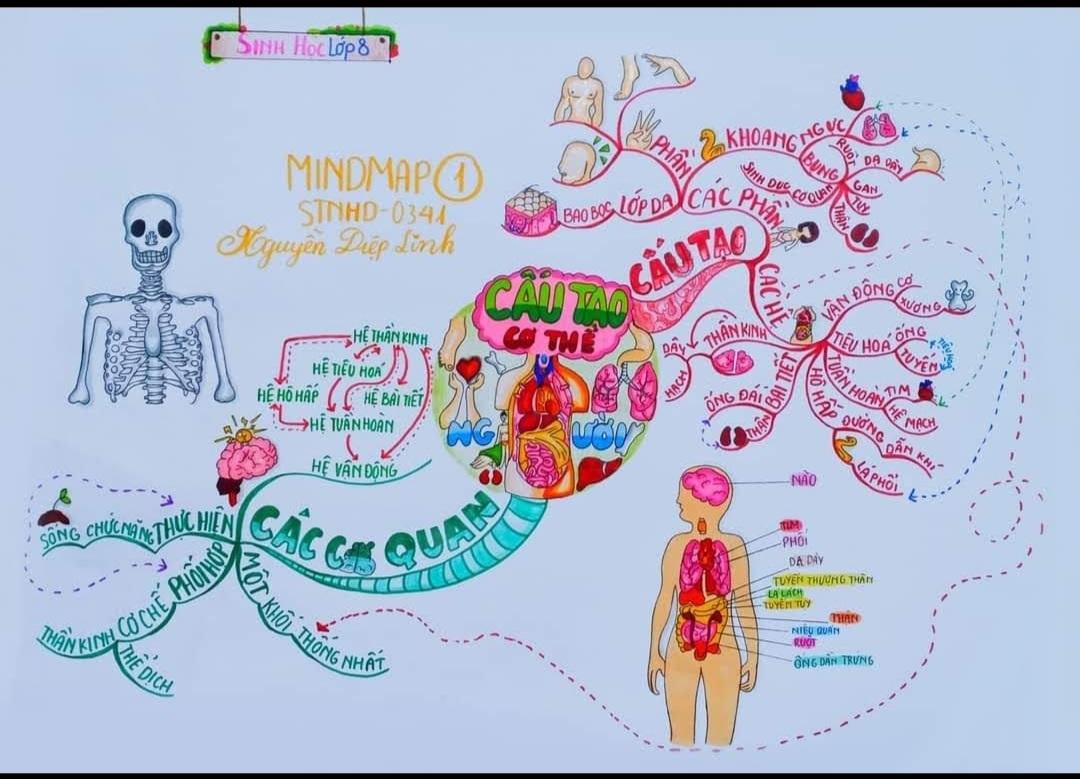 SINH HỌC LỚP 8
MINDMAP 1
STNHD-0341
Nguyễn Diệp Linh
CẤU TẠO
CƠ THỂ
NGƯỜI
CẤU TẠO
CÁC PHẦN
PHẦN
LỚP DA
BAO BỌC
KHOANG
NGỰC
BỤNG
RUỘT
DẠ DÀY
GAN
TỤY
THẬN
CƠ QUAN
SINH DỤC
CÁC HỆ
VẬN ĐỘNG
CƠ
XƯƠNG
TIÊU HOÁ
ỐNG
TUYẾN
TUẦN HOÀN
TIM
HỆ MẠCH
HÔ HẤP
ĐƯỜNG DẪN KHÍ
LÁ PHỔI
BÀI TIẾT
ỐNG ĐÁI
THẬN
THẦN KINH
DÂY
MẠCH
HỆ THẦN KINH
HỆ TIÊU HOÁ
HỆ HÔ HẤP
HỆ BÀI TIẾT
HỆ TUẦN HOÀN
HỆ VẬN ĐỘNG
CÁC CƠ QUAN
THỰC HIỆN
CHỨC NĂNG
SỐNG
PHỐI HỢP
CƠ CHẾ
THẦN KINH
THỂ DỊCH
MỘT KHỐI
THỐNG NHẤT
NÃO
TIM
PHỔI
DẠ DÀY
TUYẾN THƯỢNG THẬN
LÁ LÁCH
TUYẾN TỤY
THẬN
NIỆU QUẢN
RUỘT
ỐNG DẪN TRỨNG